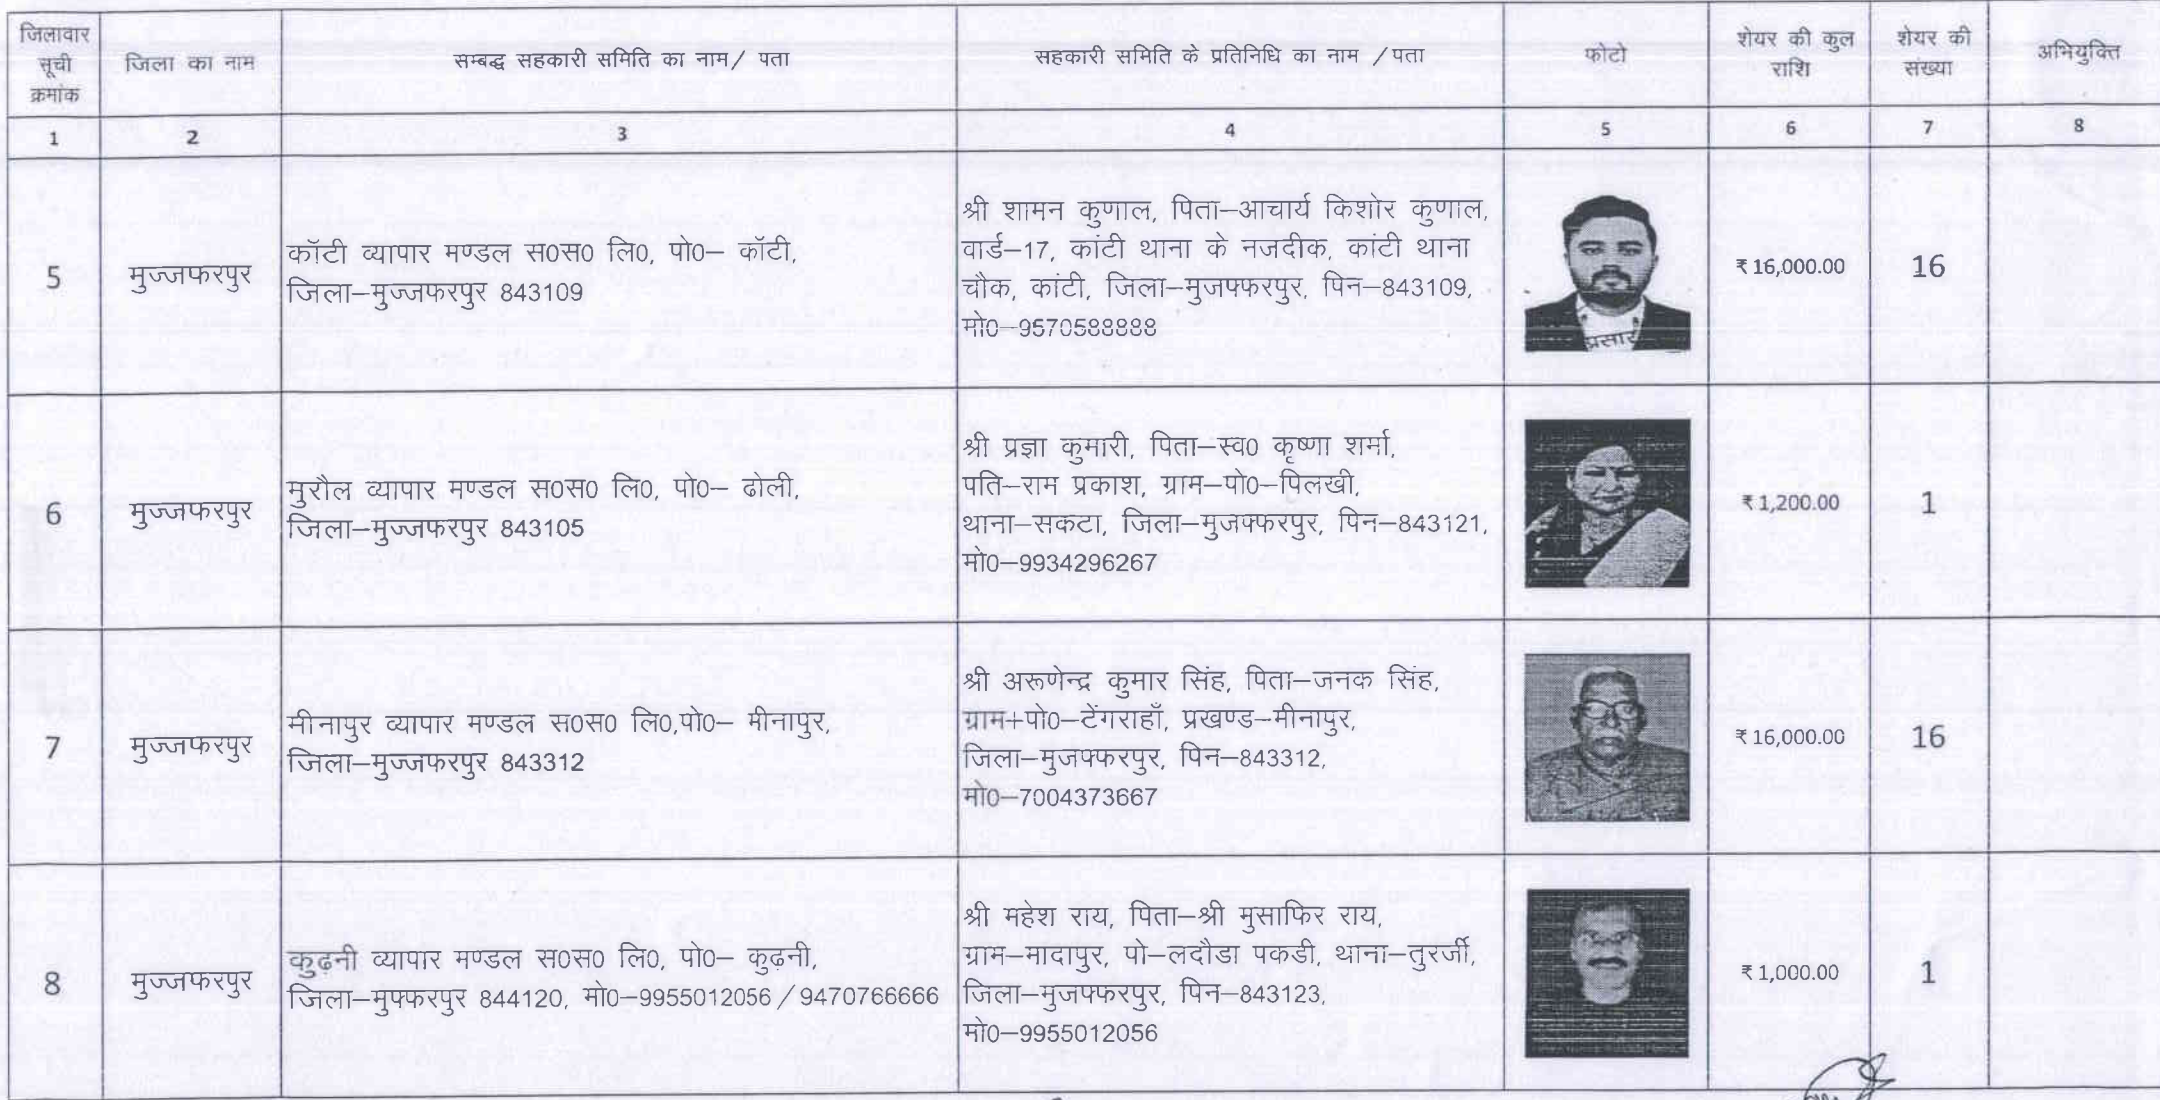 जिलावार
सूची
क्रमांक
जिला का नाम
सम्बद्ध सहकारी समिति का नाम/ पता
सहकारी समिति के प्रतिनिधि का नाम /पता
फोटो
शेयर की कुल
राशि
शेयर की
संख्या
अभियुक्ति
1 2 3 4 5 6 7 8
5
मुज्जफरपुर
कॉटी व्यापार मण्डल स0स0 लि0, पो0– कॉटी,
जिला–मुज्जफरपुर 843109
श्री शामन कुणाल, पिता–आचार्य किशोर कुणाल,
वार्ड–17, कांटी थाना के नजदीक, कांटी थाना
चौक, कांटी, जिला–मुजफ्फरपुर, पिन–843109,
मो0–9570588888
प्रसार
₹ 16,000.00
16
6
मुज्जफरपुर
मुरौल व्यापार मण्डल स0स0 लि0, पो0– ढोली,
जिला–मुज्जफरपुर 843105
श्री प्रज्ञा कुमारी, पिता–स्व0 कृष्णा शर्मा,
पति–राम प्रकाश, ग्राम–पो0–पिलखी,
थाना–सकटा, जिला–मुजफ्फरपुर, पिन–843121,
मो0–9934296267
₹ 1,200.00
1
7
मुज्जफरपुर
मीनापुर व्यापार मण्डल स0स0 लि0,पो0– मीनापुर,
जिला–मुज्जफरपुर 843312
श्री अरूणेन्द्र कुमार सिंह, पिता–जनक सिंह,
ग्राम+पो0–टेंगराहाँ, प्रखण्ड–मीनापुर,
जिला–मुजफ्फरपुर, पिन–843312,
मो0–7004373667
₹ 16,000.00
16
8
मुज्जफरपुर
कुढ़नी व्यापार मण्डल स0स0 लि0, पो0– कुढ़नी,
जिला–मुफ्फरपुर 844120, मो0–9955012056 / 9470766666
श्री महेश राय, पिता–श्री मुसाफिर राय,
ग्राम–मादापुर, पो–लदौडा पकडी, थाना–तुरर्जी,
जिला–मुजफ्फरपुर, पिन–843123,
मो0–9955012056
₹ 1,000.00
1